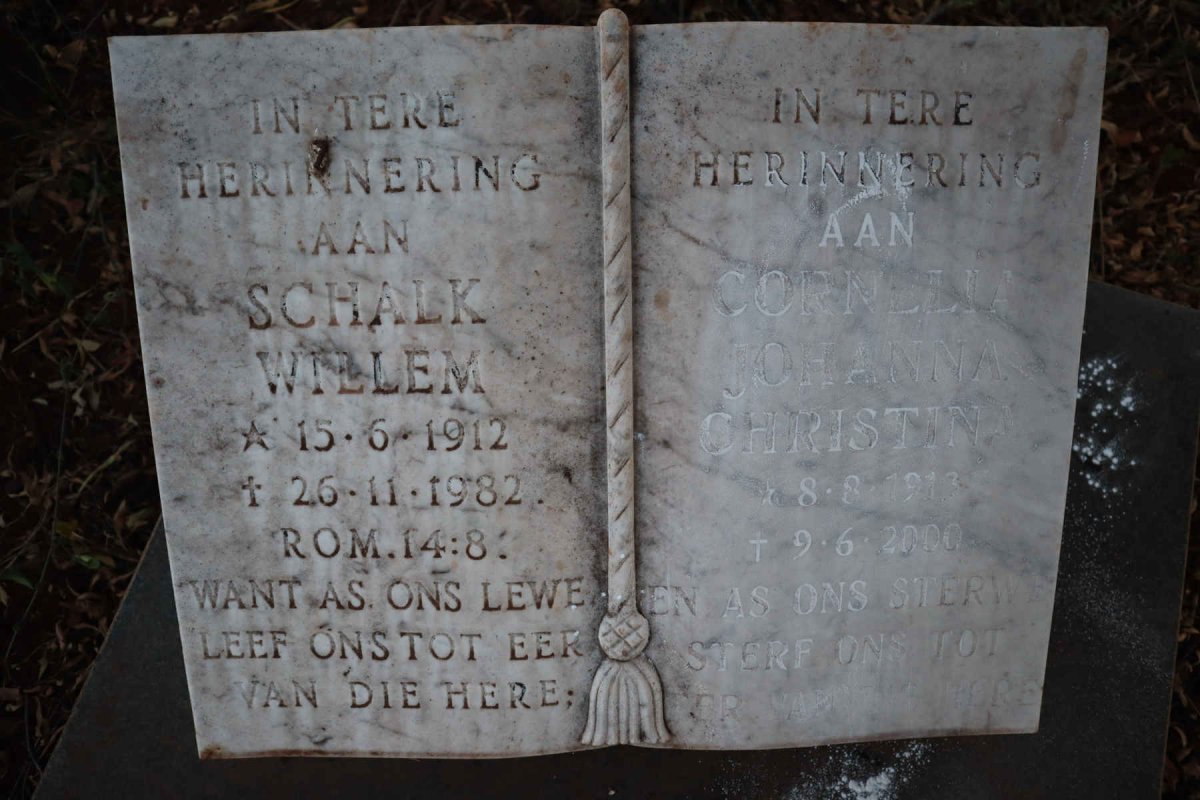 IN TERE
HERINNERING
AAN
SCHALK
WILLEM
★ 15·6·1912
† 26·11·1982.
ROM. 14:8.
WANT AS ONS LEWE
LEEF ONS TOT EER
VAN DIE HERE;
IN TERE
HERINNERING
AAN
CORNELIA
JOHANNA
CHRISTINA
★ 8·8·1913
† 9·6·2000
EN AS ONS STERWE
STERF ONS TOT
EER VAN DIE HERE